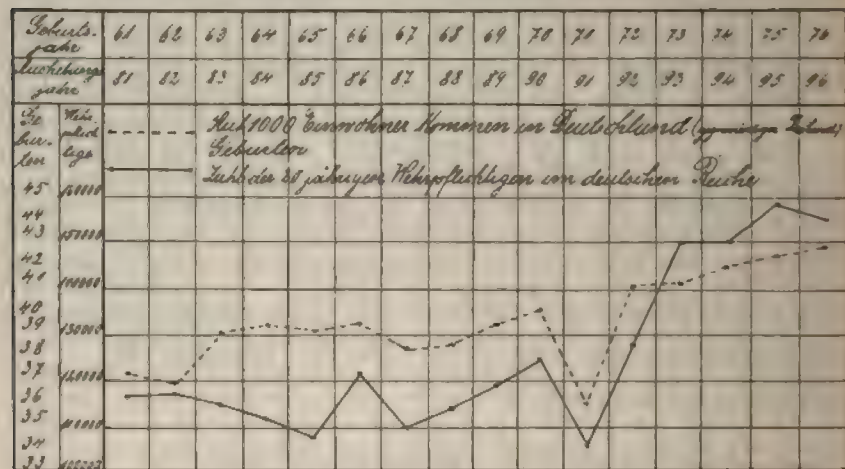 Geburts-
jahr 61 62 63 64 65 66 67 68 69 70 71 72 73 74 75 76
Aushebungs
jahr 81 82 83 84 85 86 87 88 89 90 91 92 93 94 95 96
Ge
bur-
ten
Wehr-
pflich
tige
Auf 1000 Einwohner kommen in Deutschland
Geburten
Zahl der 20 jährigen Wehrpflichtigen im deutschen Reiche
45
44
43
42
41
40
39
38
37
36
35
34
33